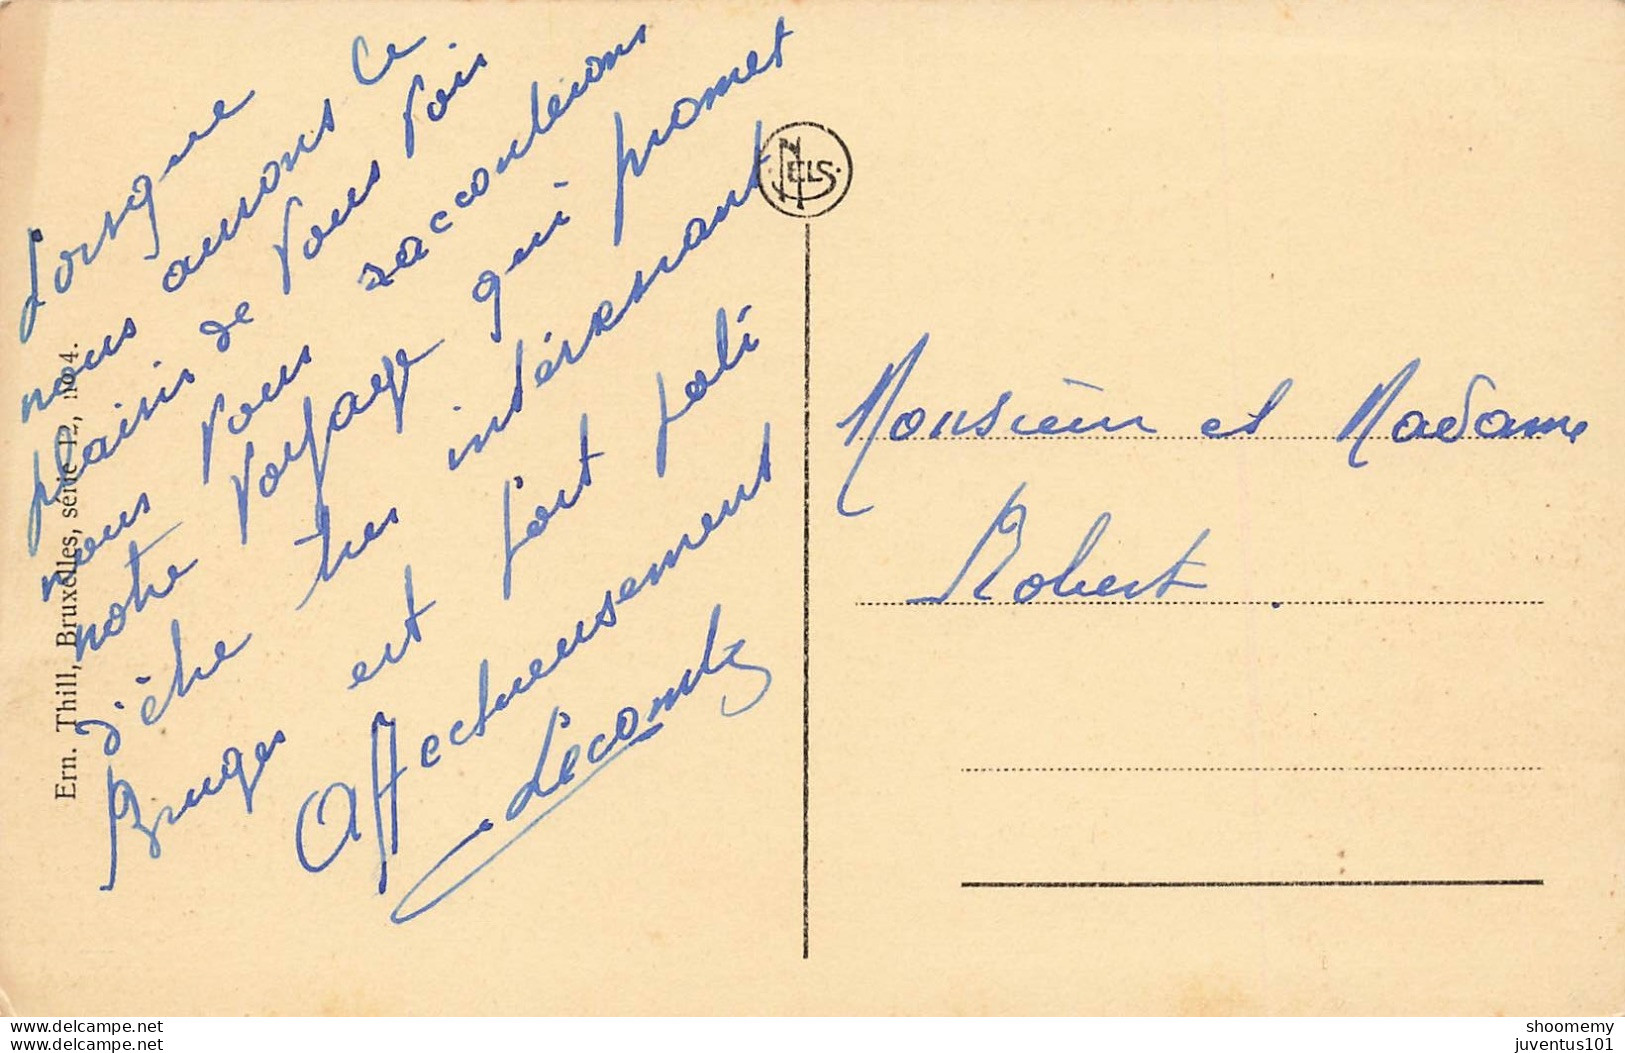 Lorsque
nous aurons ce
plaisir de vous voir
nous vous raconterons
notre voyage qui promet
d'être très intéressant
Bruges est fort joli
Affectueusement
Lecomte
NELS
Monsieur et Madame
Robert
Ern. Thill, Bruxelles, série 12, no 4.
www.delcampe.net
www.delcampe.net
shoomemy
juventus101